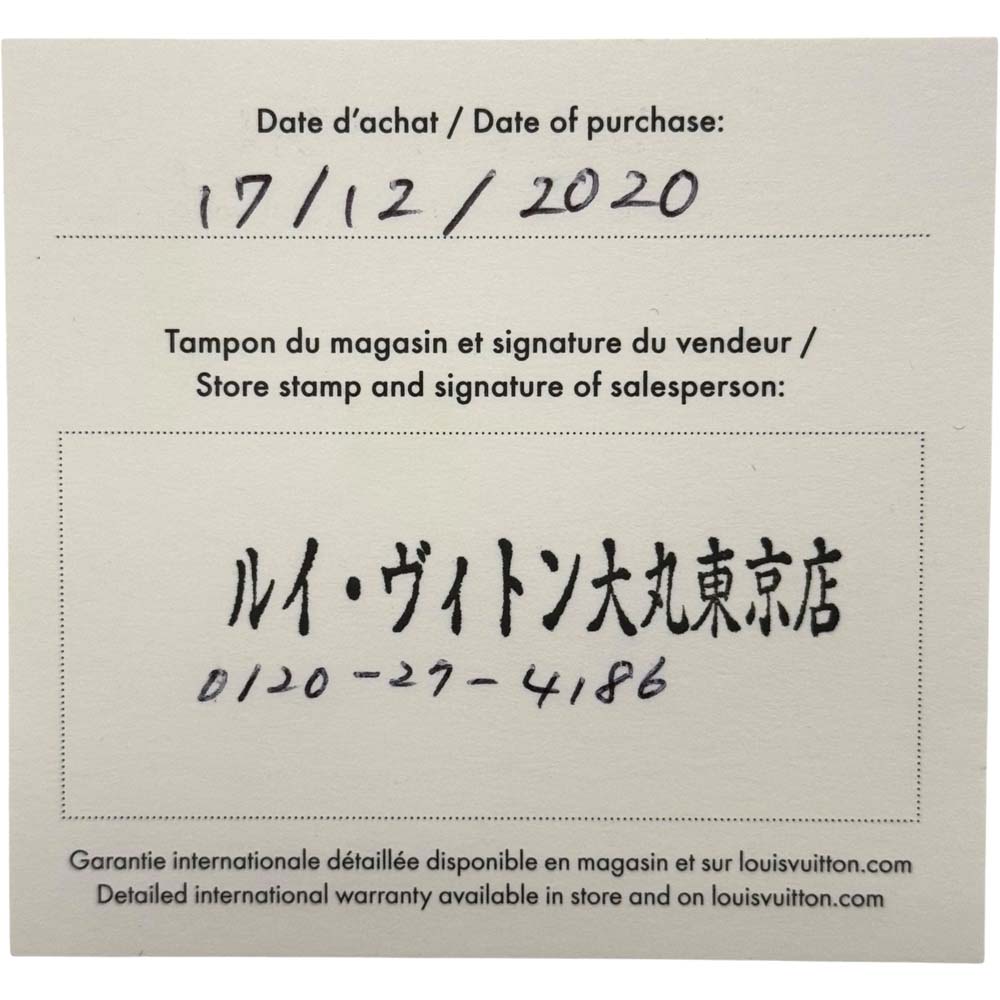 Date d'achat / Date of purchase:
17/12/2020
Tampon du magasin et signature du vendeur /
Store stamp and signature of salesperson:
ルイ・ヴィトン大丸東京店
0120-27-4186
Garantie internationale détaillée disponible en magasin et sur louisvuitton.com
Detailed international warranty available in store and on louisvuitton.com